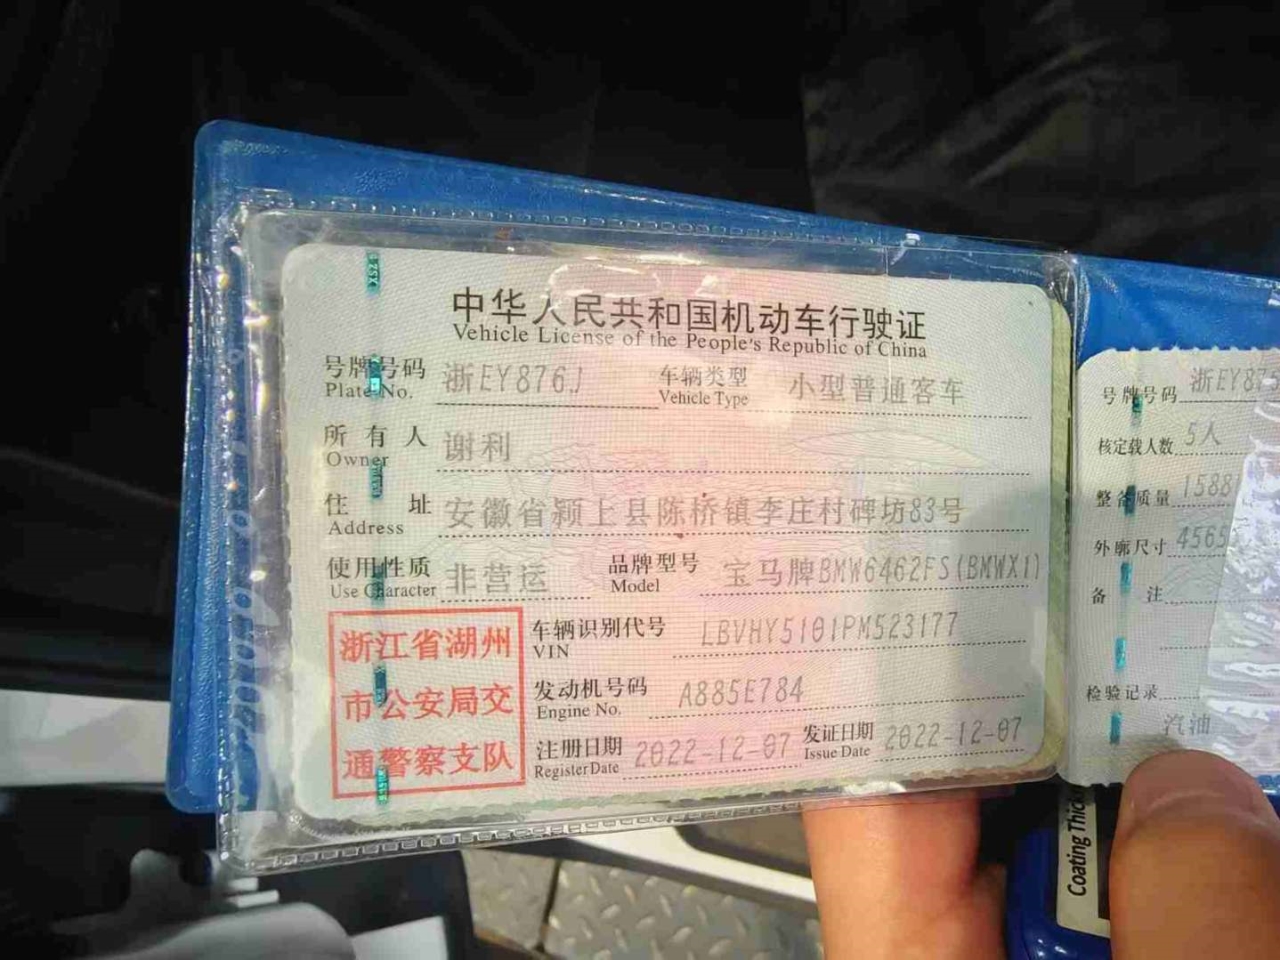 中华人民共和国机动车行驶证
Vehicle License of the People's Republic of China
号牌号码 浙EY876J 车辆类型 小型普通客车
Plate No. Vehicle Type
所有人 谢利
Owner
住址 安徽省颍上县陈桥镇李庄村碑坊83号
Address
使用性质 非营运 品牌型号 宝马牌BMW6462FS(BMWX1)
Use Character Model
浙江省湖州
市公安局交
通警察支队
车辆识别代号 LBVHY5101PM523177
VIN
发动机号码 A885E784
Engine No.
注册日期 2022-12-07 发证日期 2022-12-07
Register Date Issue Date
号牌号码 浙EY87
核定载人数 5人
整备质量 1588
外廓尺寸 4565
备注
检验记录
汽油
Coating Thic